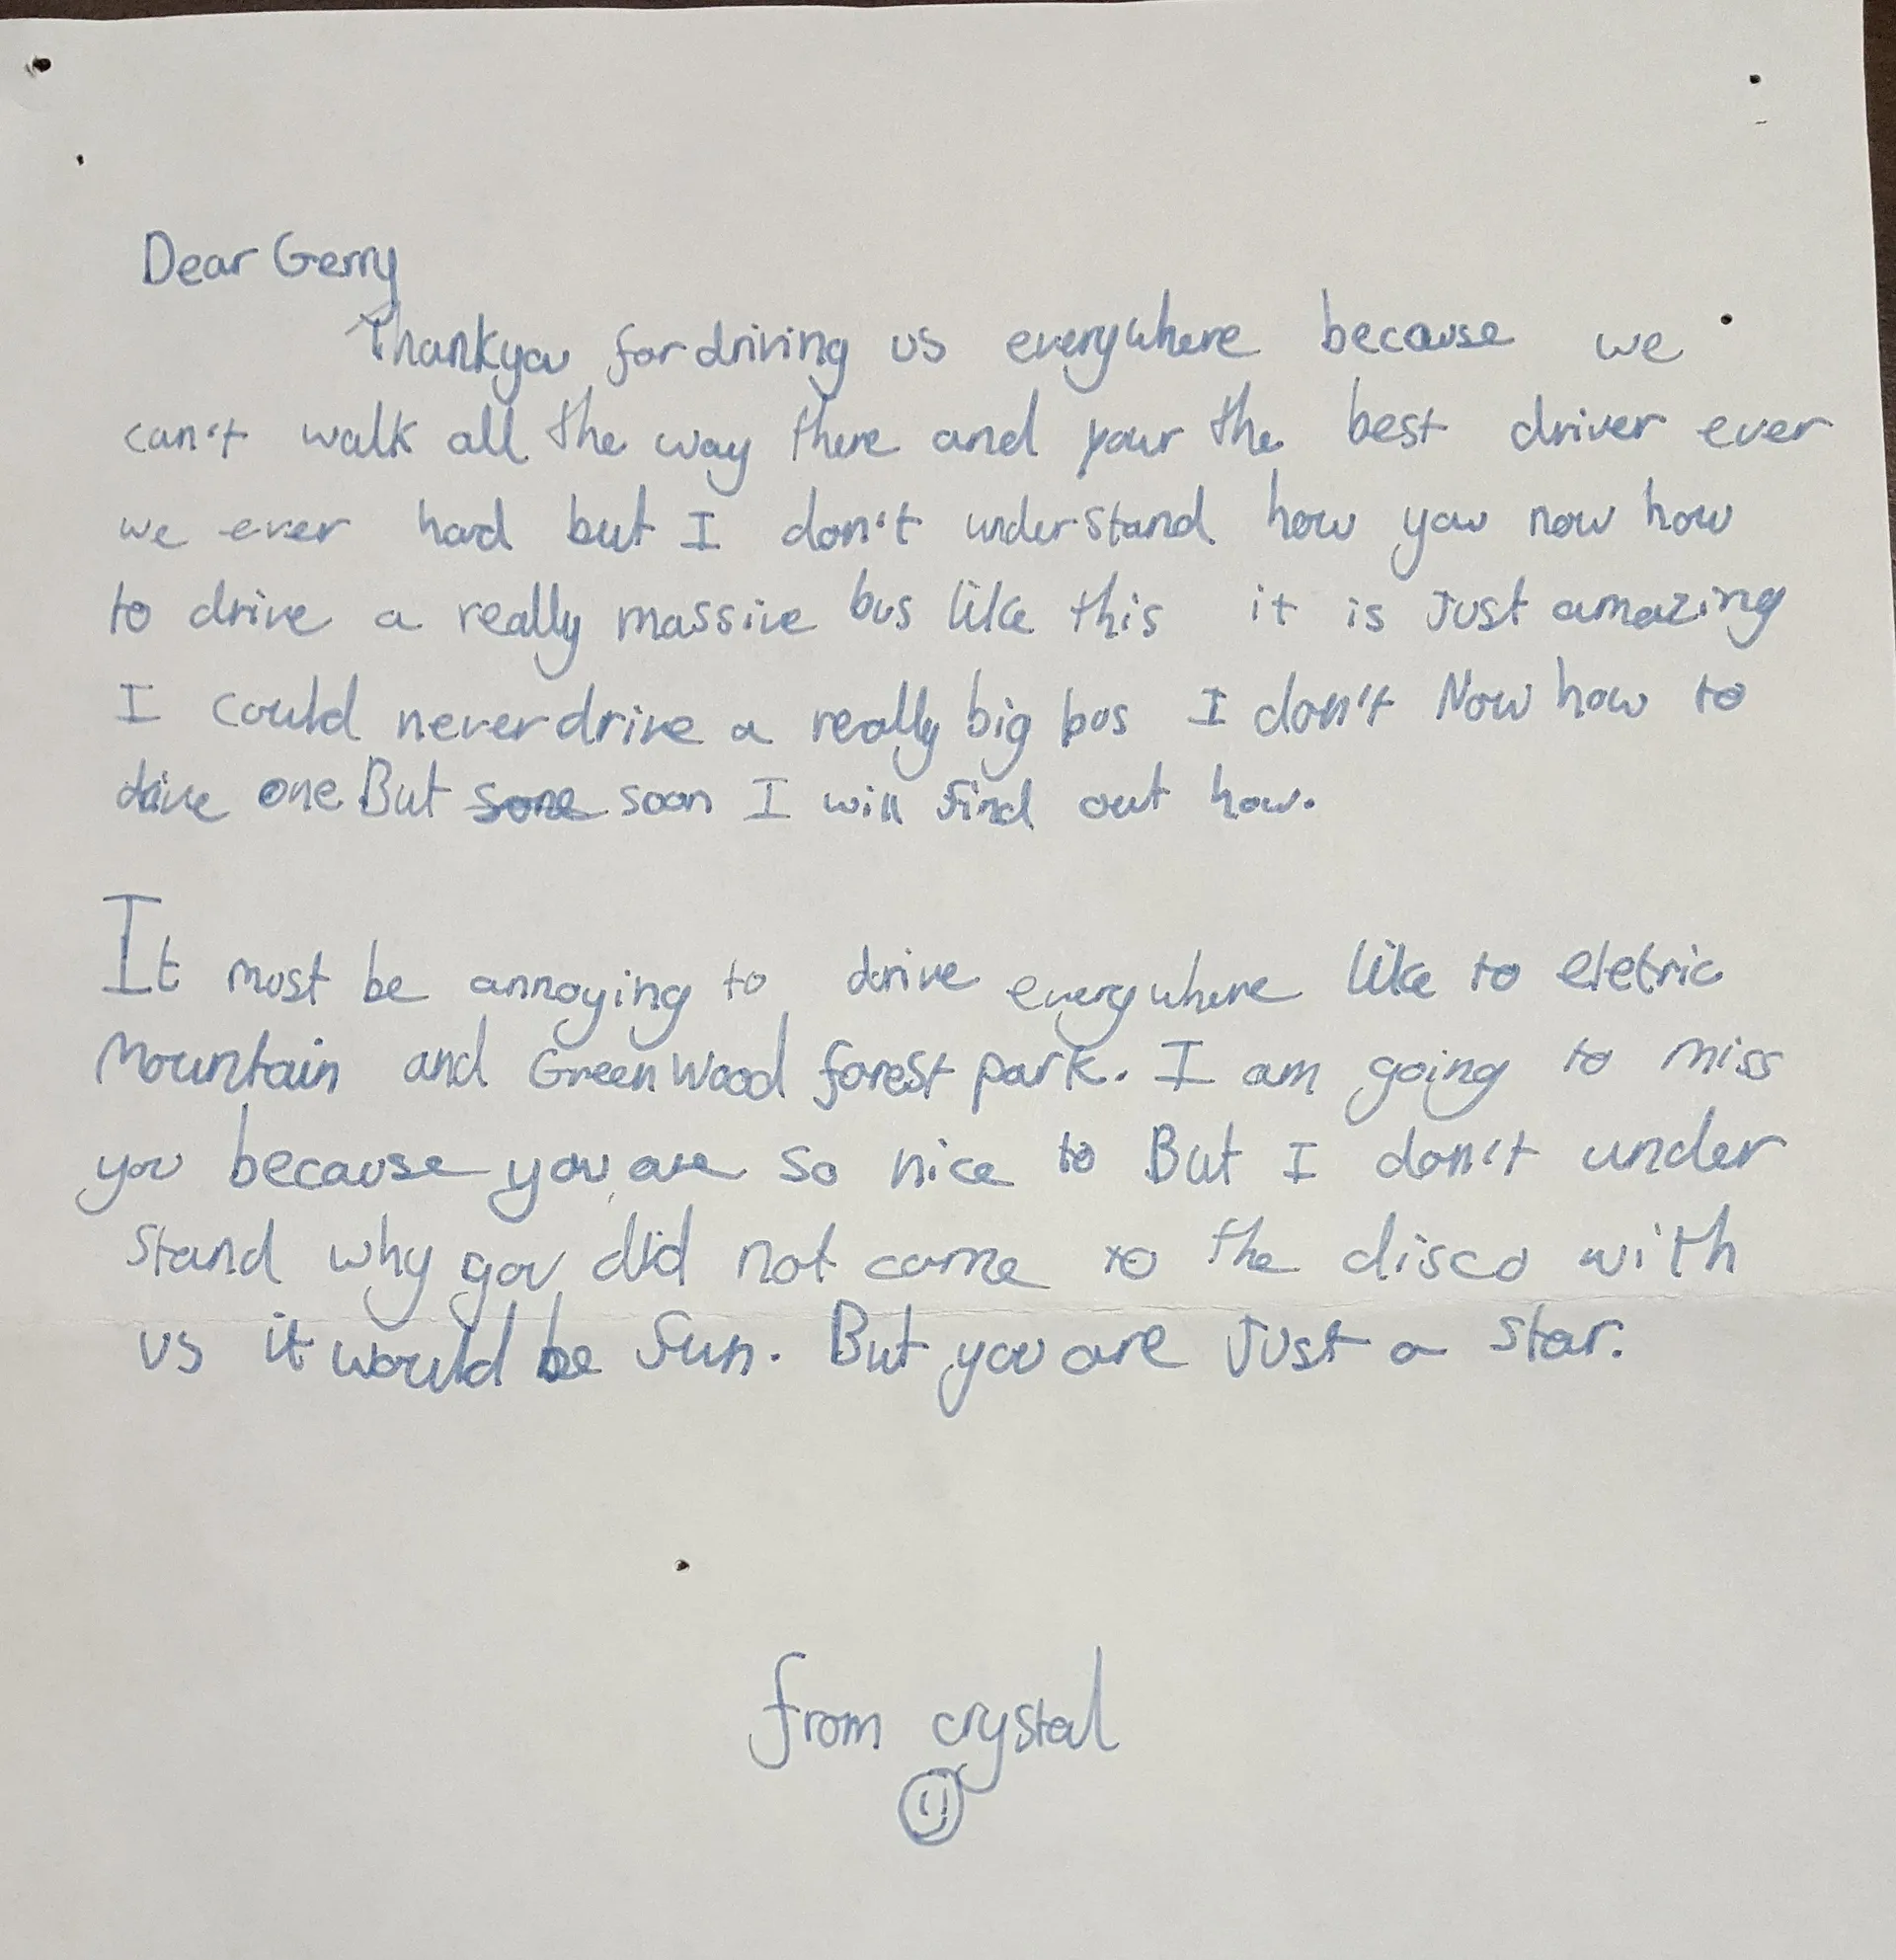 Dear Gerry
Thankyou for driving us everywhere because we
can't walk all the way there and your the best driver ever
we ever had but I don't understand how you now how
to drive a really massive bus like this it is Just amazing
I could never drive a really big bus I don't Now how to
drive one But sone soon I will find out how.
It must be annoying to drive everywhere like to eletric
Mountain and Green Wood forest park. I am going to miss
you because you are so nice to But I don't under
stand why you did not come to the disco with
us it would be fun. But you are Just a star.
from crystal